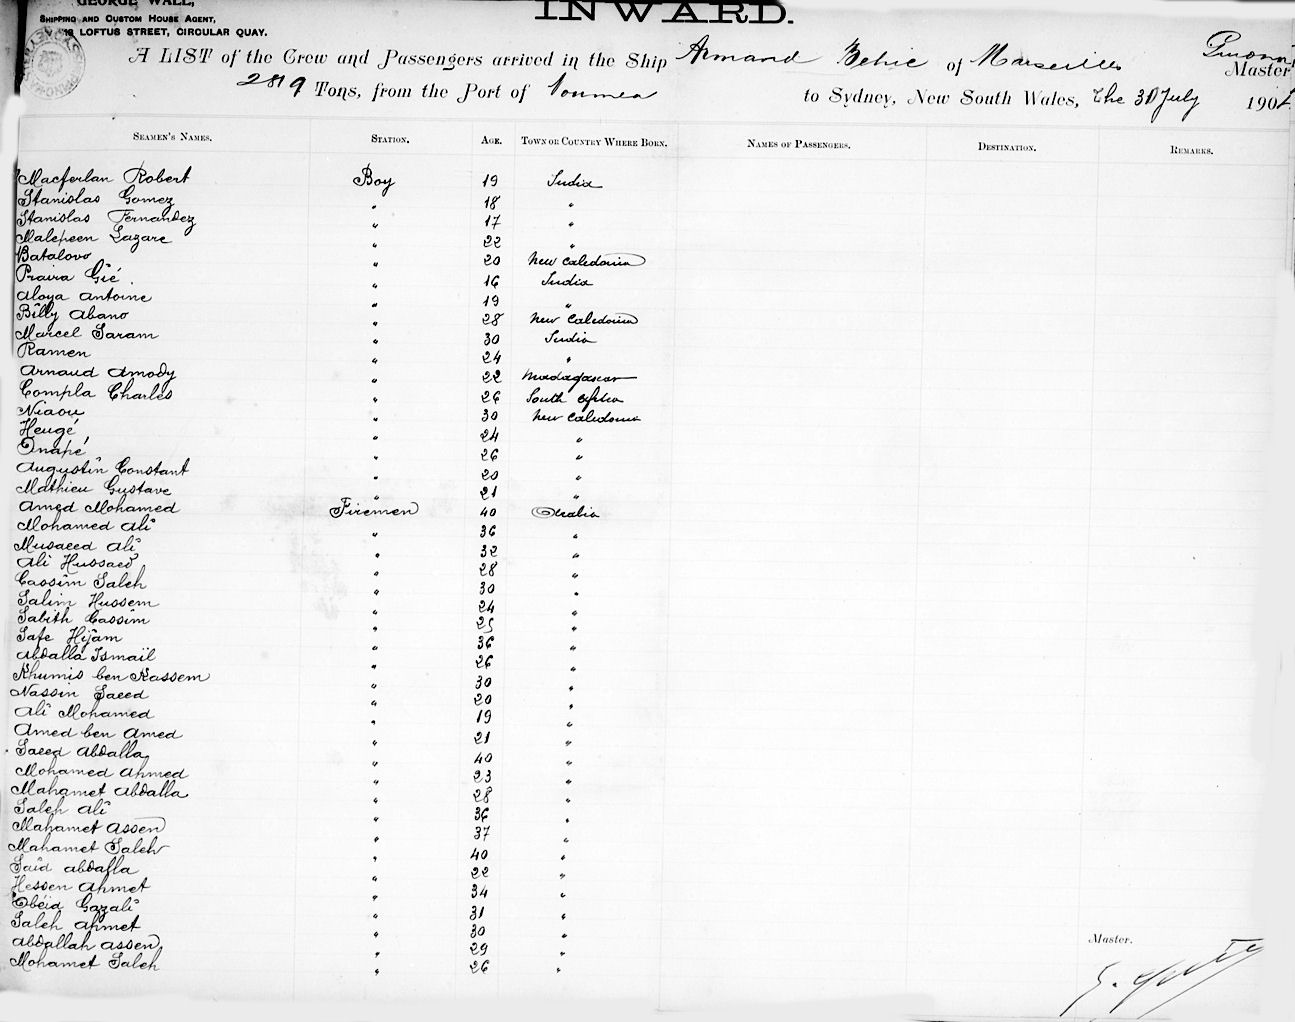 GEORGE WALL,
SHIPPING AND CUSTOM HOUSE AGENT,
LOFTUS STREET, CIRCULAR QUAY.
INWARD.
A LIST of the Crew and Passengers arrived in the Ship Armand Behic of Marseilles Master
2819 Tons, from the Port of Noumea to Sydney, New South Wales, the 30 July 190
SEAMEN'S NAMES. STATION. AGE. TOWN OR COUNTRY WHERE BORN. NAMES OF PASSENGERS. DESTINATION. REMARKS.
Macferlan Robert Boy 19 India
Stanislas Gomez " 18 "
Stanislas Fernandez " 17 "
Malepeen Lazare " 22 "
Batalovo " 20 New Caledonia
Praira Gié. " 16 India
Aloya Antoine " 19 "
Billy Abano " 28 New Caledonia
Marcel Saram " 30 India
Ramen " 24 "
Arnaud Amody " 22 Madagascar
Compla Charles " 26 South Africa
Niaou " 30 New Caledonia
Heugé " 24 "
Onapé " 26 "
Augustin Constant " 20 "
Mathieu Gustave " 21 "
Amed Mohamed Firemen 40 Arabia
Mohamed Ali " 36 "
Musaeed Ali " 32 "
Ali Hussaed " 28 "
Cassim Saleh " 30 "
Salim Hussem " 24 "
Sabith Cassim " 25 "
Safe Hijam " 36 "
Abdalla Ismaïl " 26 "
Khumis ben Kassem " 30 "
Nassin Saeed " 20 "
Ali Mohamed " 19 "
Amed ben Amed " 21 "
Saeed Abdalla " 40 "
Mohamed Ahmed " 23 "
Mahamet Abdalla " 28 "
Saleh Ali " 36 "
Mahamet Assen " 37 "
Mahamet Saleh " 40 "
Saïd Abdalla " 22 "
Hessen Ahmet " 34 "
Obéid Gazali " 31 "
Saleh Ahmet " 30 "
Abdallah Assen " 29 "
Mohamet Saleh " 26 "
Master.